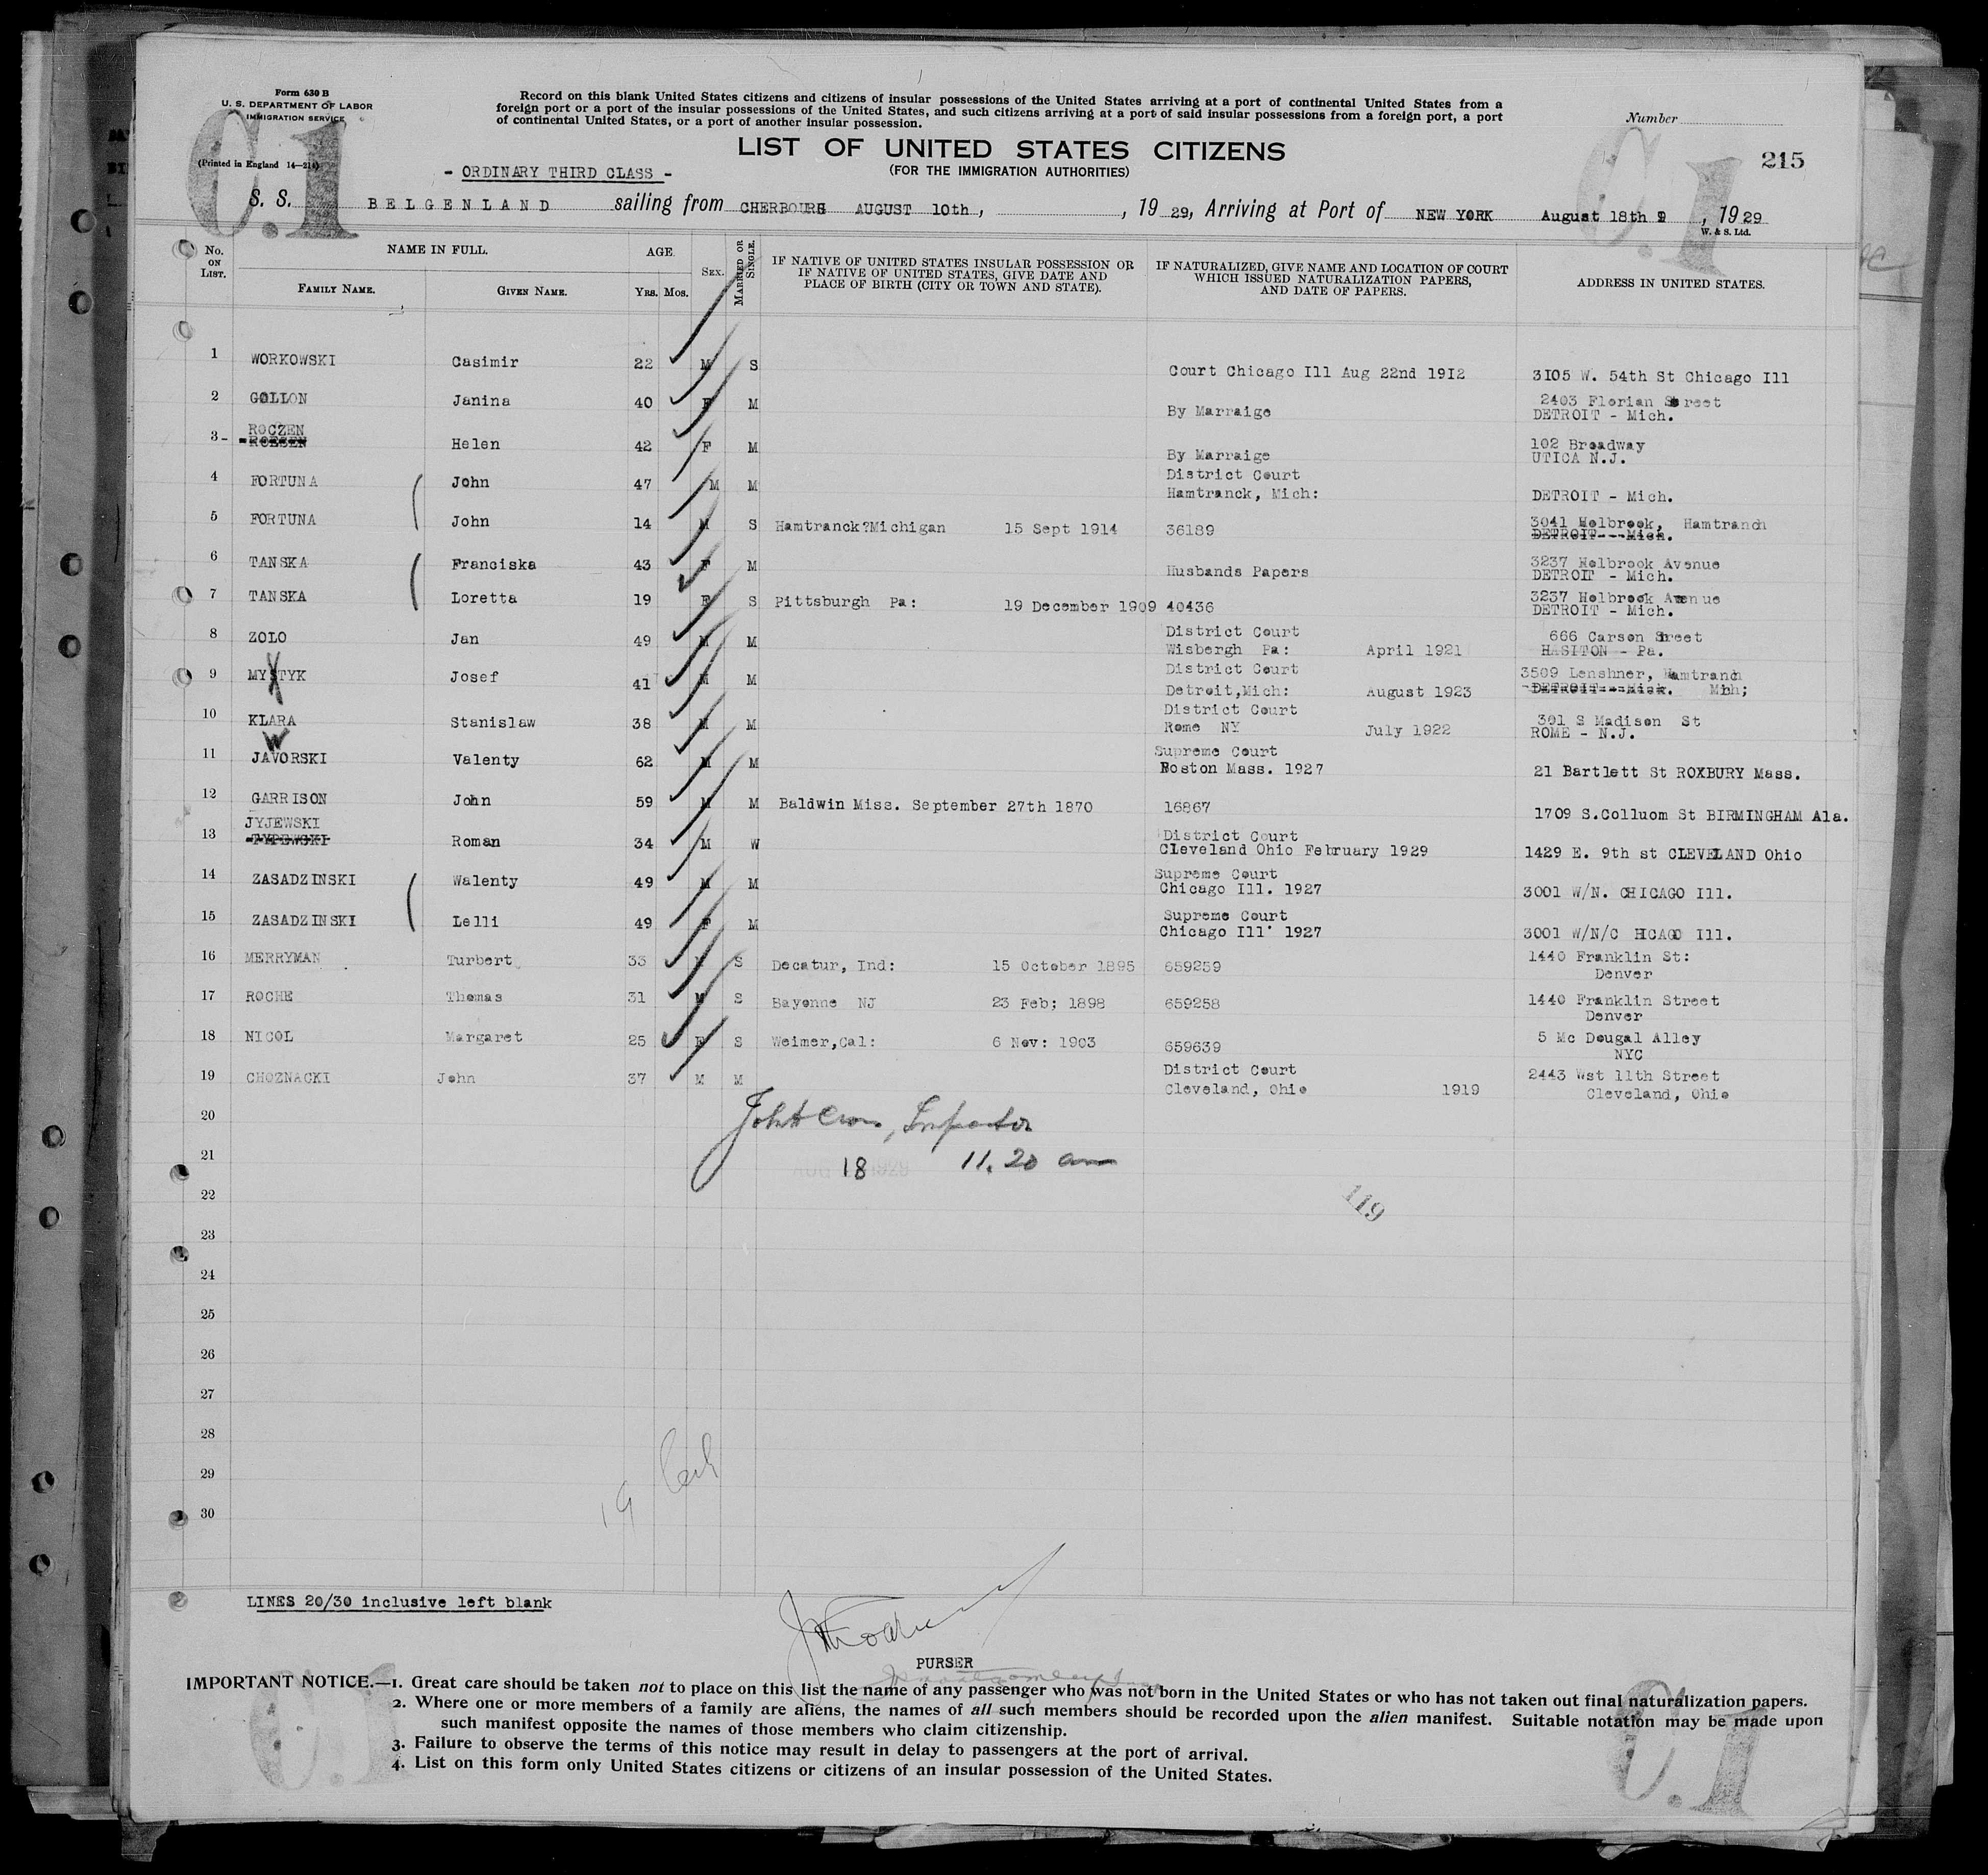 Form 630 B
U. S. DEPARTMENT OF LABOR
IMMIGRATION SERVICE
(Printed in England 14—214)
C.1
C.1
Record on this blank United States citizens and citizens of insular possessions of the United States arriving at a port of continental United States from a
foreign port or a port of the insular possessions of the United States, and such citizens arriving at a port of said insular possessions from a foreign port, a port
of continental United States, or a port of another insular possession.
Number
215
LIST OF UNITED STATES CITIZENS
(FOR THE IMMIGRATION AUTHORITIES)
- ORDINARY THIRD CLASS -
S. S. BELGENLAND sailing from CHERBOURG AUGUST 10th, , 19 29, Arriving at Port of NEW YORK August 18th , 19 29
W. & S. Ltd.
No. ON LIST. NAME IN FULL. FAMILY NAME. GIVEN NAME. AGE YRS. MOS. SEX. MARRIED OR SINGLE. IF NATIVE OF UNITED STATES INSULAR POSSESSION OR IF NATIVE OF UNITED STATES, GIVE DATE AND PLACE OF BIRTH (CITY OR TOWN AND STATE). IF NATURALIZED, GIVE NAME AND LOCATION OF COURT WHICH ISSUED NATURALIZATION PAPERS, AND DATE OF PAPERS. ADDRESS IN UNITED STATES.
1 WORKOWSKI Casimir 22 M S Court Chicago Ill Aug 22nd 1912 3105 W. 54th St Chicago Ill
2 GOLLON Janina 40 F M By Marraige 2403 Florian Street
DETROIT - Mich.
ROCZEN
3- Helen 42 F M By Marraige 102 Broadway
UTICA N.J.
4 FORTUNA John 47 M M District Court
Hamtranck, Mich: DETROIT - Mich.
5 FORTUNA John 14 M S Hamtranck?Michigan 15 Sept 1914 36189 3041 Holbrook, Hamtranch
DETROIT - Mich.
6 TANSKA Franciska 43 F M Husbands Papers 3237 Holbrook Avenue
DETROIT - Mich.
7 TANSKA Loretta 19 F S Pittsburgh Pa: 19 December 1909 40436 3237 Holbrook Avenue
DETROIT - Mich.
8 ZOLO Jan 49 M M District Court
Wisbergh Pa: April 1921 666 Carson Street
HASITON - Pa.
9 MYSTYK Josef 41 M M District Court
Detroit,Mich: August 1923 3509 Lenshner, Hamtranch
DETROIT - Mich. Mich;
10 KLARA Stanislaw 38 M M District Court
Rome NY July 1922 301 S Madison St
ROME - N.J.
W
11 JAVORSKI Valenty 62 M M Supreme Court
Boston Mass. 1927 21 Bartlett St ROXBURY Mass.
12 GARRISON John 59 M M Baldwin Miss. September 27th 1870 16867 1709 S.Colluom St BIRMINGHAM Ala.
JYJEWSKI
13 Roman 34 M W District Court
Cleveland Ohio February 1929 1429 E. 9th st CLEVELAND Ohio
14 ZASADZINSKI Walenty 49 M M Supreme Court
Chicago Ill. 1927 3001 W/N. CHICAGO Ill.
15 ZASADZINSKI Lelli 49 F M Supreme Court
Chicago Ill' 1927 3001 W/N/C HCAGO Ill.
16 MERRYMAN Turbert 33 M S Decatur, Ind: 15 October 1895 659259 1440 Franklin St:
Denver
17 ROCHE Thomas 31 M S Bayonne NJ 23 Feb; 1898 659258 1440 Franklin Street
Denver
18 NICOL Margaret 25 F S Weimer,Cal: 6 Nov: 1903 659639 5 Mc Dougal Alley
NYC
19 CHOZNACKI John 37 M M District Court
Cleveland, Ohio 1919 2443 Wst 11th Street
Cleveland, Ohio
20
21 18 11.20 am
22
119
23
24
25
26
27
28
29
19
30
LINES 20/30 inclusive left blank
PURSER
IMPORTANT NOTICE.—1. Great care should be taken not to place on this list the name of any passenger who was not born in the United States or who has not taken out final naturalization papers.
2. Where one or more members of a family are aliens, the names of all such members should be recorded upon the alien manifest. Suitable notation may be made upon
such manifest opposite the names of those members who claim citizenship.
3. Failure to observe the terms of this notice may result in delay to passengers at the port of arrival.
4. List on this form only United States citizens or citizens of an insular possession of the United States.
C.1
C.1